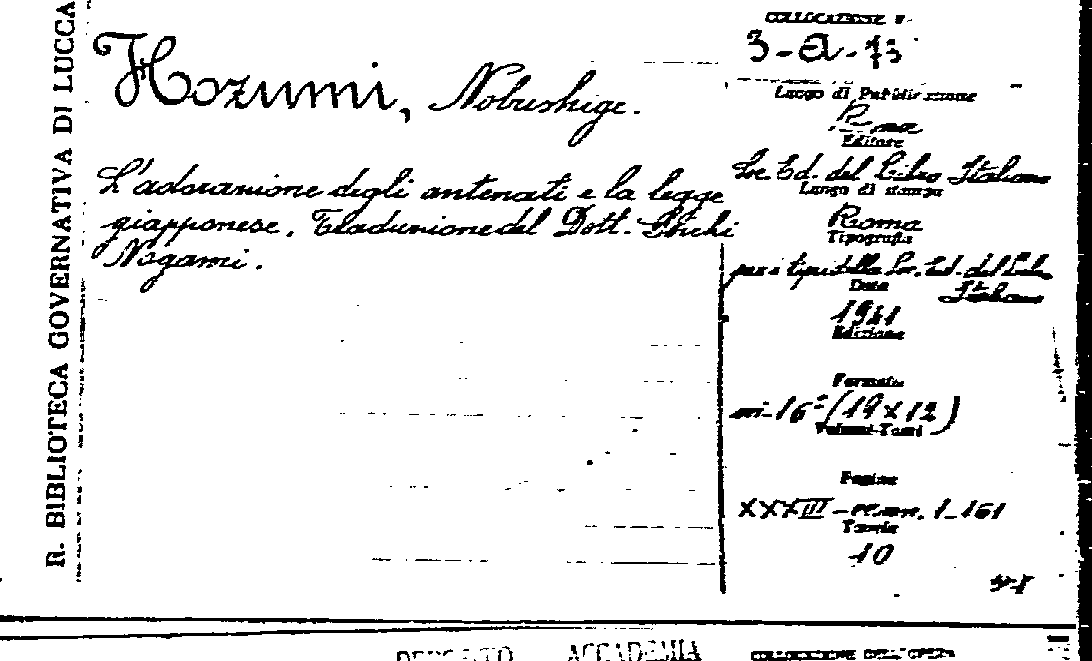 R. BIBLIOTECA GOVERNATIVA DI LUCCA
Hozumi, Nobushige.
L'adorazione degli antenati e la legge
giapponese. Traduzione del Dott.
Nogami.
COLLOCAZIONE N.
3-a-73
Luogo di Pubblicazione
Roma
Editore
Soc. Ed. del Libro Italiano
Luogo di stampa
Roma
Tipografia
per i tipi della Soc. Ed. del Libro
Italiano
Data
1941
Edizione
Formato
in-16° (19 x 12)
Volumi-Tomi
Pagine
XXXIII-num. 1-161
Tavole
10
ACCADEMIA
COLLOCAZIONE DELL'OPERA